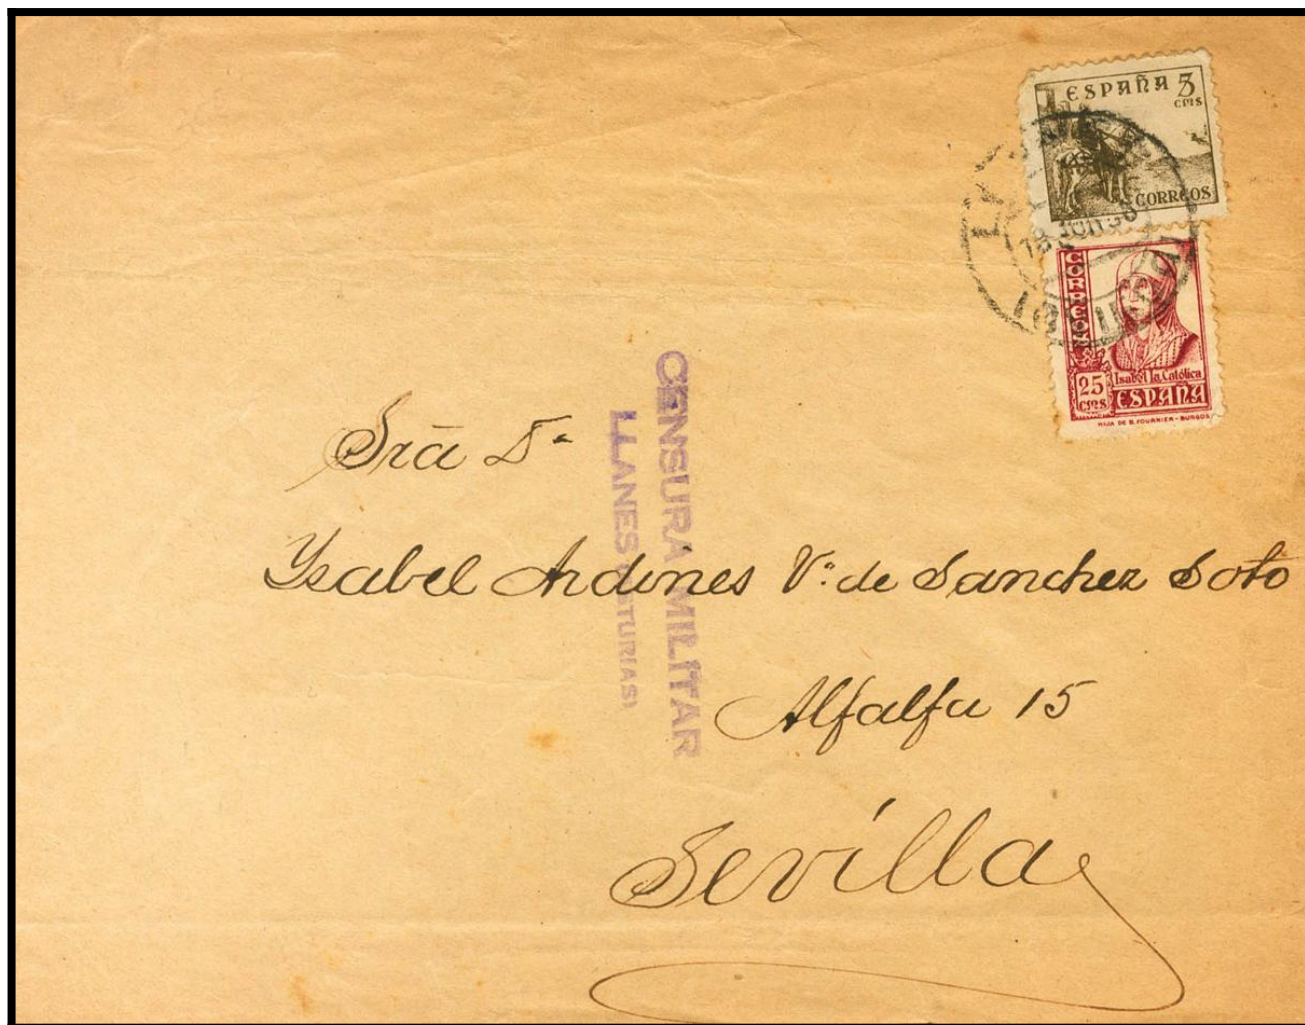 ESPAÑA 5
CMS
CORREOS
18 JUN 38
CORREOS
Isabel la Católica
25
CMS
ESPAÑA
HIJA DE B. FOURNIER - BURGOS
CENSURA MILITAR
LLANES (ASTURIAS)
Sra D.ª
Ysabel Andines V.ª de Sanchez Soto
Alfalfa 15
Sevilla